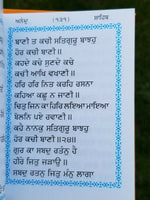 ਅਨੰਦੁ (੧੩੧) ਸਾਹਿਬ
ਬਾਣੀ ਤ ਕਚੀ ਸਤਿਗੁਰੂ ਬਾਝਹੁ
ਹੋਰ ਕਚੀ ਬਾਣੀ ॥
ਕਹਦੇ ਕਚੇ ਸੁਣਦੇ ਕਚੇ
ਕਚੀ ਆਖਿ ਵਖਾਣੀ ॥
ਹਰਿ ਹਰਿ ਨਿਤ ਕਰਹਿ ਰਸਨਾ
ਕਹਿਆ ਕਛੂ ਨ ਜਾਣੀ ॥
ਚਿਤੁ ਜਿਨ ਕਾ ਹਿਰਿ ਲਇਆ ਮਾਇਆ
ਬੋਲਨਿ ਪਏ ਰਵਾਣੀ ॥
ਕਹੈ ਨਾਨਕੁ ਸਤਿਗੁਰੂ ਬਾਝਹੁ
ਹੋਰ ਕਚੀ ਬਾਣੀ ॥੨੪॥
ਗੁਰ ਕਾ ਸਬਦੁ ਰਤੰਨੁ ਹੈ
ਹੀਰੇ ਜਿਤੁ ਜੜਾਉ ॥
ਸਬਦੁ ਰਤਨੁ ਜਿਤੁ ਮੰਨੁ ਲਾਗਾ